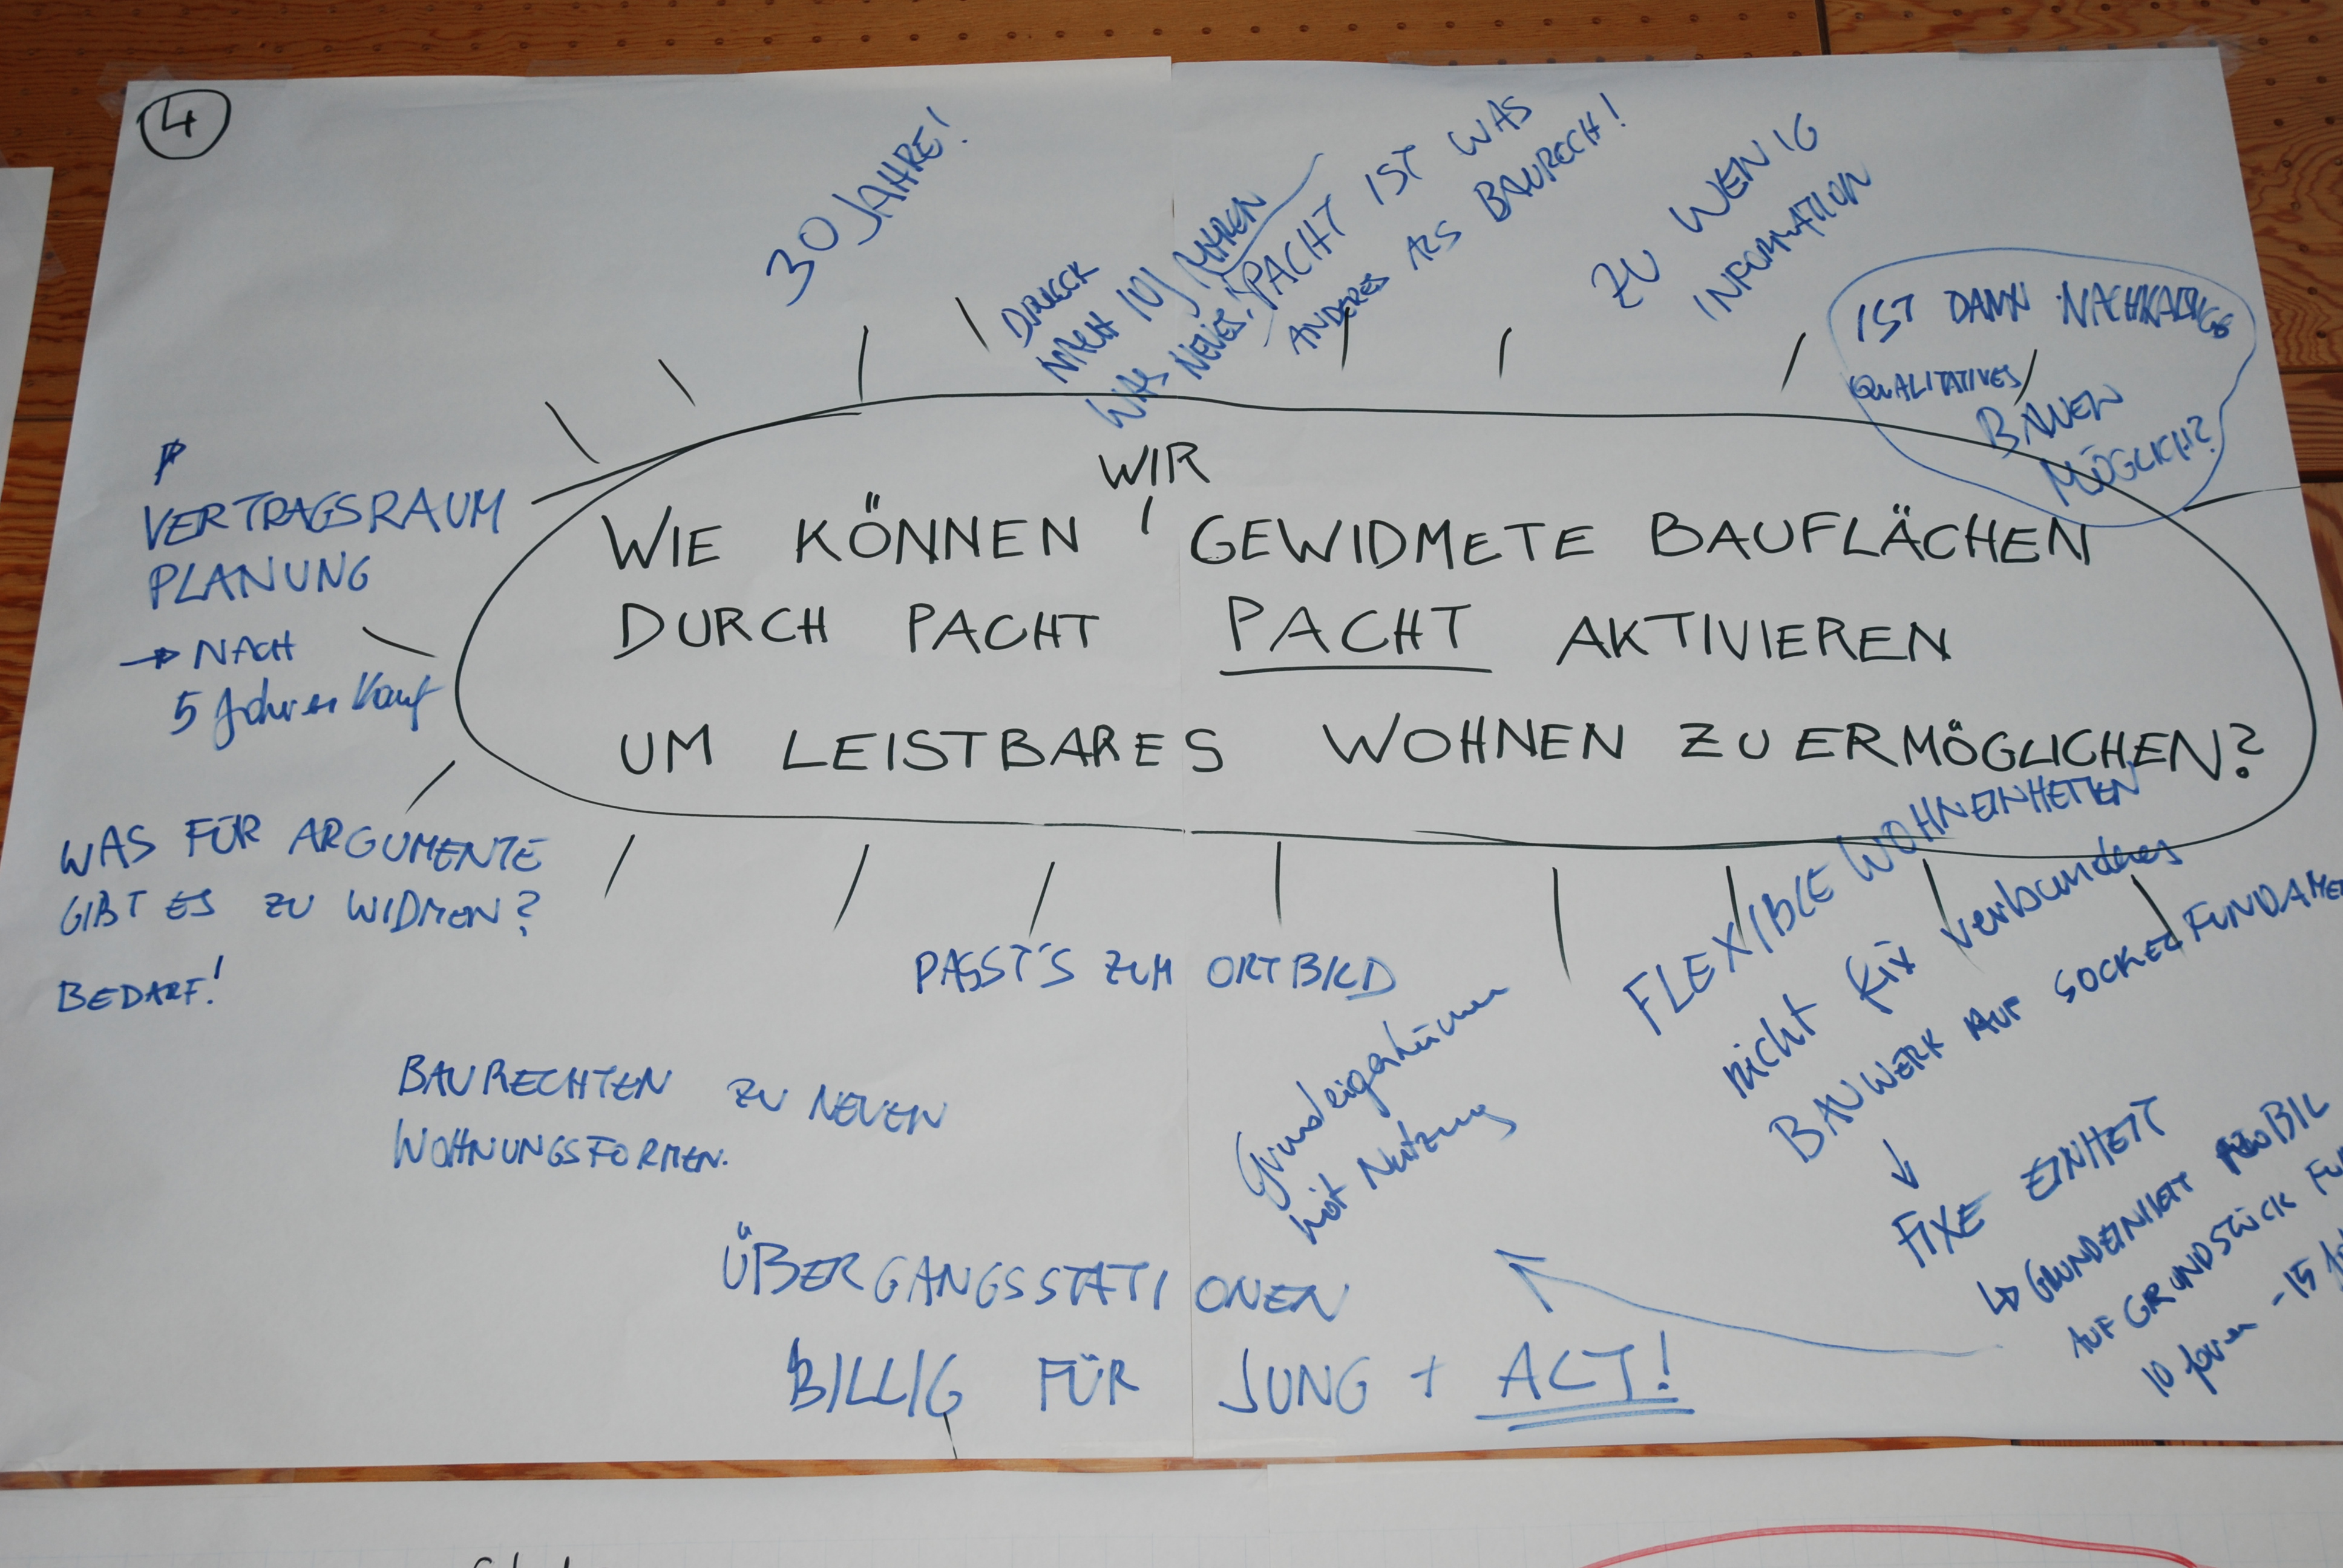 4
30 JAHRE!
DRUCK
NACH 10 JAHREN
WAS NEUES!
PACHT IST WAS
ANDERES ALS BAURECH!
ZU WENIG
INFORMATION
IST DANN
QUALITATIVES
BAUEN
MÖGLICH?
VERTRAGSRAUM
PLANUNG
→ NACH
5 Jahren Kauf
WIR
WIE KÖNNEN GEWIDMETE BAUFLÄCHEN
DURCH PACHT PACHT AKTIVIEREN
UM LEISTBARES WOHNEN ZU ERMÖGLICHEN?
WAS FÜR ARGUMENTE
GIBT ES ZU WIDMEN?
BEDARF!
PASST'S ZUM ORTBILD
BAURECHTEN ZU NEUEN
WOHNUNGSFORMEN.
Grundeigentümer
hört Nutzung
FLEXIBLE WOHNEINHEITEN
nicht fix verbundenes
BAUWERK AUF SOCKEL FUNDAMEN
↓
FIXE EINHEIT
↳ GRUNDEINHEIT MOBIL
AUF GRUNDSTÜCK FÜ
10 Jahren - 15
ÜBERGANGSSTATIONEN
BILLIG FÜR JUNG + ALT!